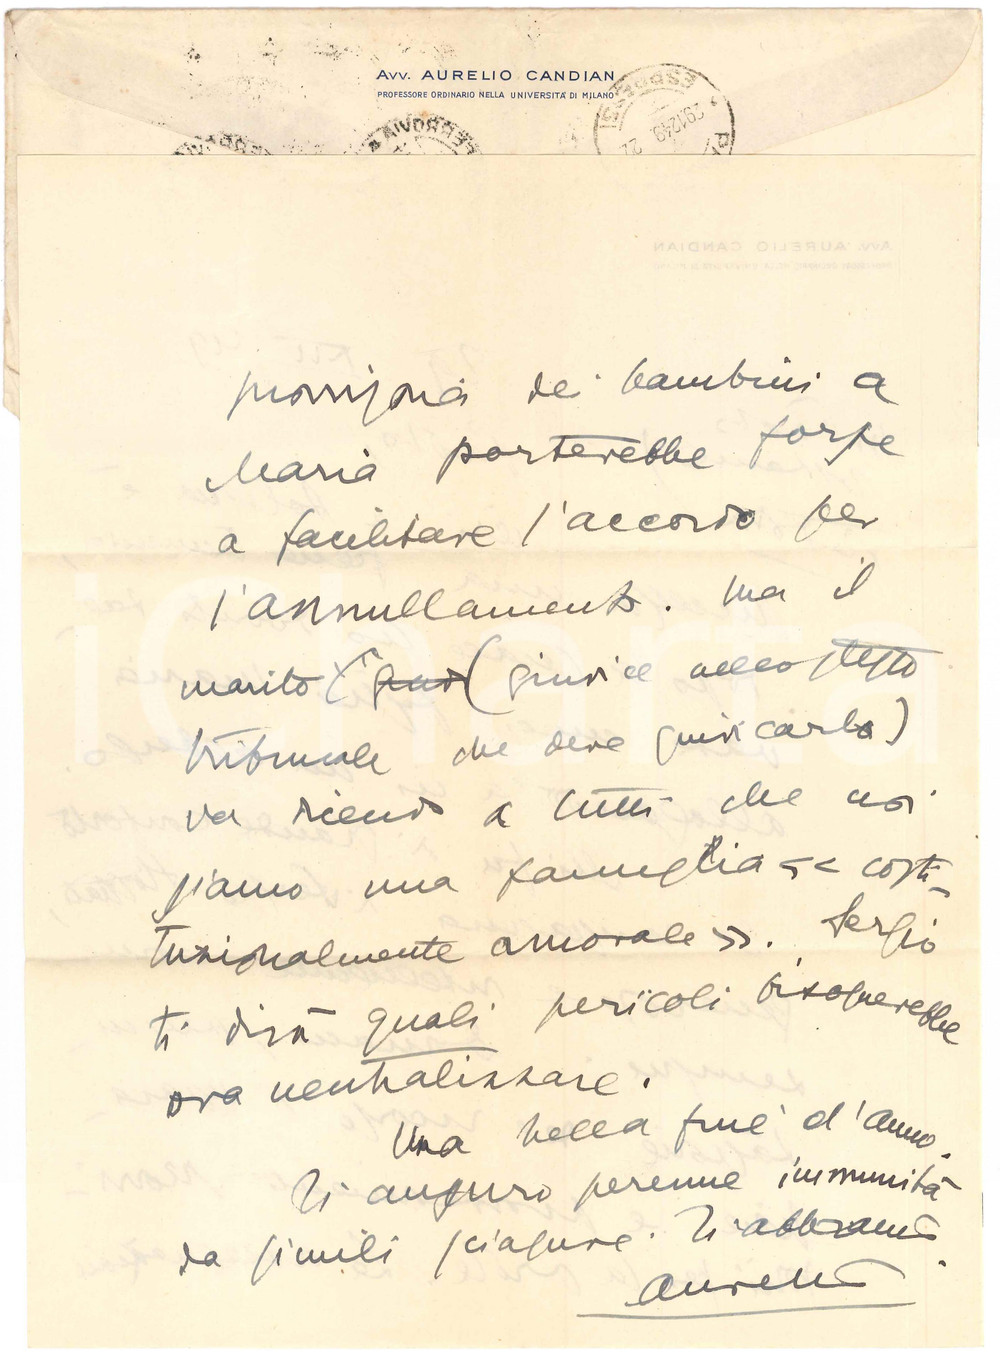 Avv. AURELIO CANDIAN
PROFESSORE ORDINARIO NELLA UNIVERSITÀ DI MILANO
ESPRESSI
29.12.49. 2
FERROVIA
dei bambini a
Maria porterebbe forse
a facilitare l'accordo per
l'annullamento. Ma il
marito (giudice nello stesso
tribunale che deve giudicarla)
va dicendo a tutti che noi
siamo una famiglia << costi-
tuzionalmente amorale >>. Sergio
ti dirà quali pericoli bisognerebbe
ora neutralizzare.
Una bella fine d'anno.
Ti auguro perenne immunità
da simili sciagure. Ti abbraccio
Aurelio
iCharta